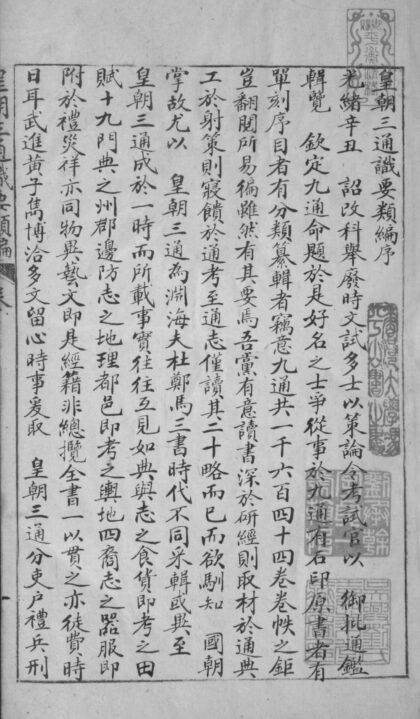 皇朝三通識要類編序
光緒辛丑　詔改科舉廢時文試多士以策論令考試官以　御批通鑑
輯覽　欽定九通命題於是好名之士爭從事於九通有石印原書者有
單刻序目者有分類纂輯者竊意九通共一千六百四十四卷卷帙之鉅
豈翻閱所易徧雖然有其要焉吾黨有意讀書深於研經則取材於通典
工於射策則寢饋於通考至通志僅讀其二十略而已而欲馴知　國朝
掌故尤以　皇朝三通為淵海夫杜鄭馬三書時代不同采輯或異至
皇朝三通成於一時而所載事實往往互見如典與志之食貨即考之田
賦十九門典之州郡邊防志之地理都邑即考之輿地四裔志之器服即
附於禮災祥亦同物異藝文即是經籍非總攬全書一以貫之亦徒費時
日耳武進黃子雋博洽多文留心時事爰取　皇朝三通分吏戶禮兵刑
皇朝三通識要類編